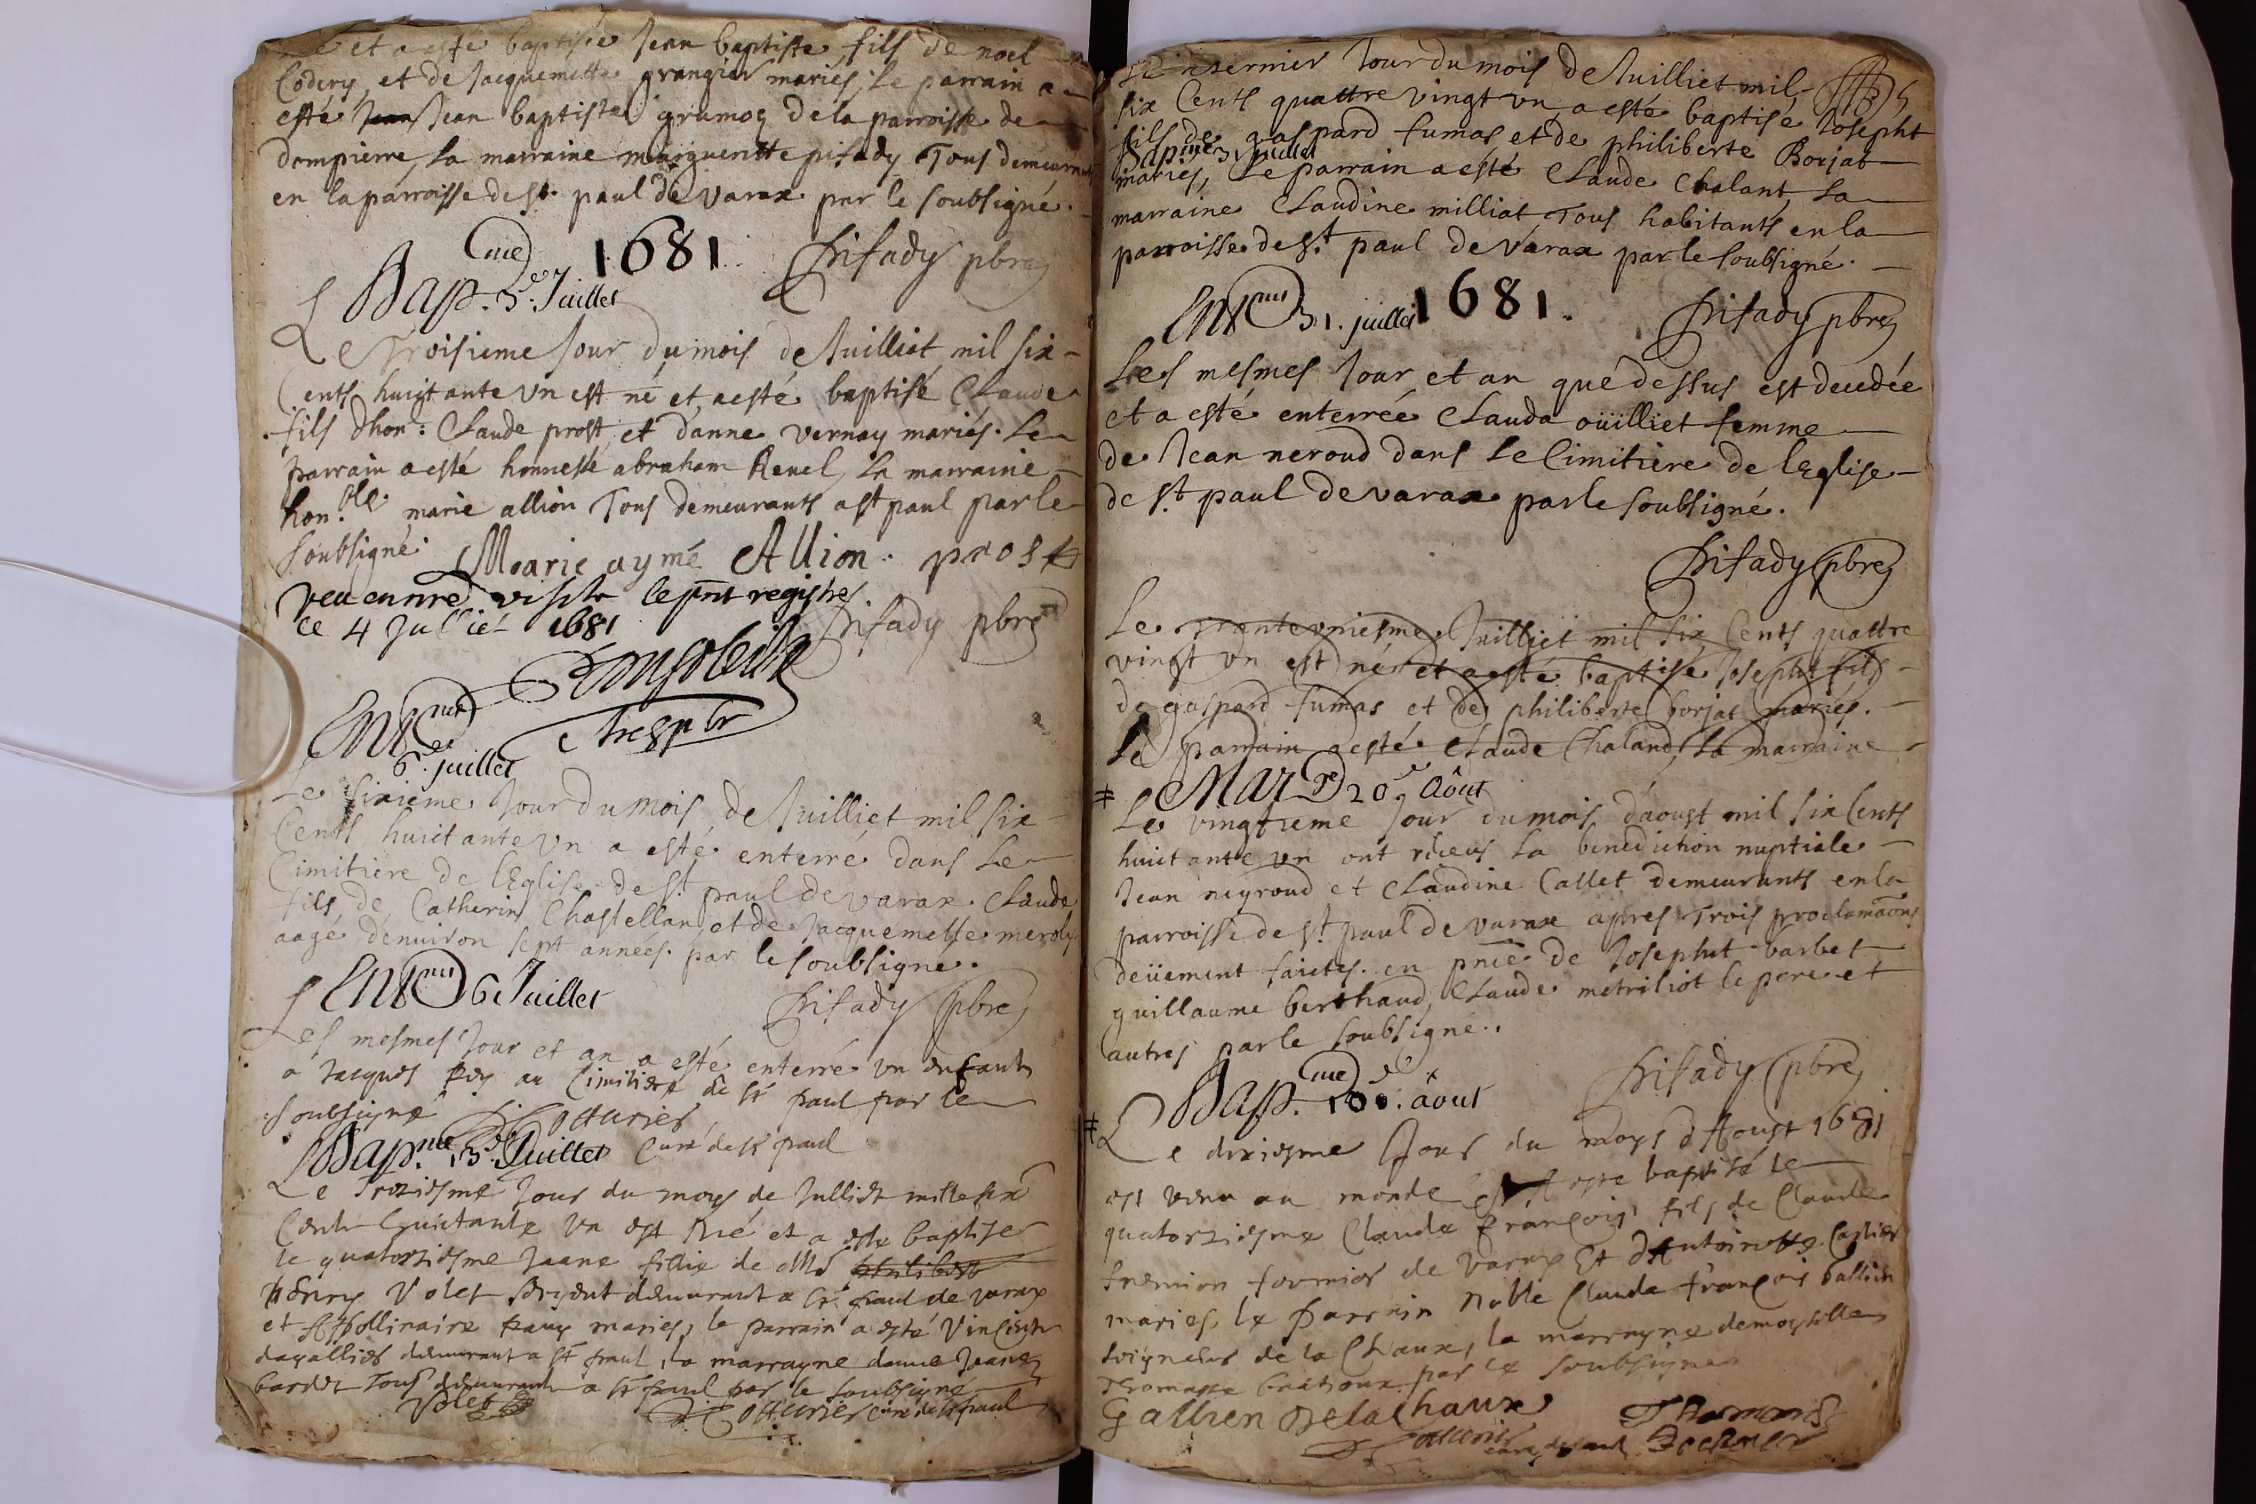 et a esté baptisé Jean baptiste fils de noel
Codery, et de Jacquemette grangier mariés, Le parrain a
esté Jean Jean baptiste grumoz de la parroisse de
dompierre, la marraine margueritte pifady Tous demeurants
en la parroisse de st. paul de varax par le soubsigné.
1681
Pifady pbre
Bap.me 3.e Juillet
Le Troisieme Jour du mois de Juilliet mil six
Cents huigtante vn est né et a esté baptisé Claude
fils dhon: Claude prost et danne vernay mariés. Le
parrain a esté honneste abraham Revel, la marraine
hon.ble marie allion Tous demeurants a st paul par le
soubsigné. Marie aymé Allion. prost
veu en nre visite le pnt registre
ce 4 Jullié 1681
Pifady pbre
Ent.mt 6.e juillet
Le sixieme Jour du mois de Juilliet mil six
Cents huictante vn a esté enterré dans le
Cimitiere de lEglise de st paul de varax. Claude
fils de Catherin Chastellan et de Jacquemette meroly
aagé denuiron sept années. par le soubsigné.
Ent.mt 6 Juillet
Pifady pbre
Les mesmes Jour et an a esté enterré vn enfant
a Jacques Rey au Cimitiere de st paul par le
soubsigné
Curé de st paul
Bap.me 13.e Juillet
Le Treziesme Jour du moys de Julliet mille six
Cents huictante vn est née et a esté baptisee
le quatorziesme Jeane fillie de Mre philibert
henry Volet demeurant a st paul de varax
et Appollinaire mariés, le parrain a esté Vincent
dagallier demeurant a st paul, la marrayne dame Jeane
bardet Tous demeurants a st paul par le soubsigné
Volet
curé de st paul
Le dernier Jour du mois de Juilliet mil
six Cents quattre vingt vn, a esté baptisé Josepht
fils de gaspard fumas, et de philiberte Borjat
Bap.me 31 Juillet
mariés, Le parrain a esté Claude Chalant, La
marraine Claudine milliat Tous habitants en la
parroisse de St paul de varax par le soubsigné.
Ent.mt 31. juillet 1681.
Pifady pbre
Les mesmes Jour et an que dessus est decedée
et a esté enterrée Clauda oüilliet femme
de Jean neroud dans le Cimitiere de lEglise
de St paul de varax par le soubsigné.
Pifady pbre
Le trante vniesme Juilliet mil six Cents quattre
vingt vn est né et a esté baptisé Josepht fils
de gaspard fumas et de philiberte borjat mariés.
Le parrain a esté Claude Chaland, la marraine
Mar.e 20.e Aôut
Le vingtieme Jour du mois daoust mil six Cents
huictante vn ont receus la benediction nuptiale
Jean neyroud et Claudine Callet demeurants en la
parroisse de st paul de varax apres Trois proclamaons
deüement faictes. en pnce de Josepht barbet
guillaume berthaud, Claude metriliot le pere et
autres par le soubsigné.
Pifady pbre
Bap.me 10.e aôut
Le dixiesme Jour du moys dAoust 1681
est venu au monde et a esté baptisé le
quatorziesme Claude François, fils de Claude
fremion fournier de varax Et dAntoinette Carlier
mariés, le parrain Noble Claude François Gallien
seigneur de la Chaux, la marrayne demoyselle
Thomasse par le soubsigné
Gallien de la chaux
curé de st paul